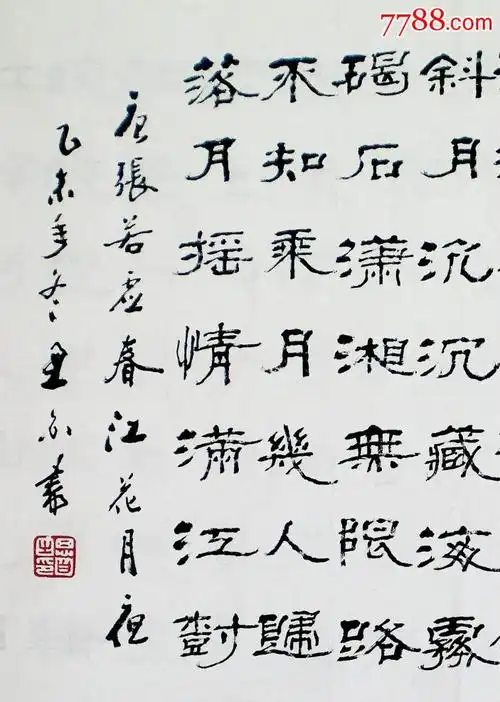 7788.com
斜月沉沉藏海霧
碣石潇湘無限路
不知乘月幾人歸
落月摇情滿江樹
唐張若虛春江花月夜
乙未年冬